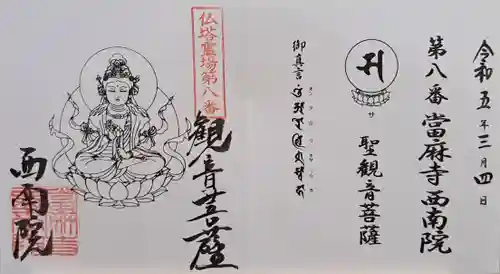 令和五年三月四日
第八番 當麻寺 西南院
サ
聖観音菩薩
御真言
オンアロリキャソワカ
仏塔霊場第八番
観音菩薩
西南院